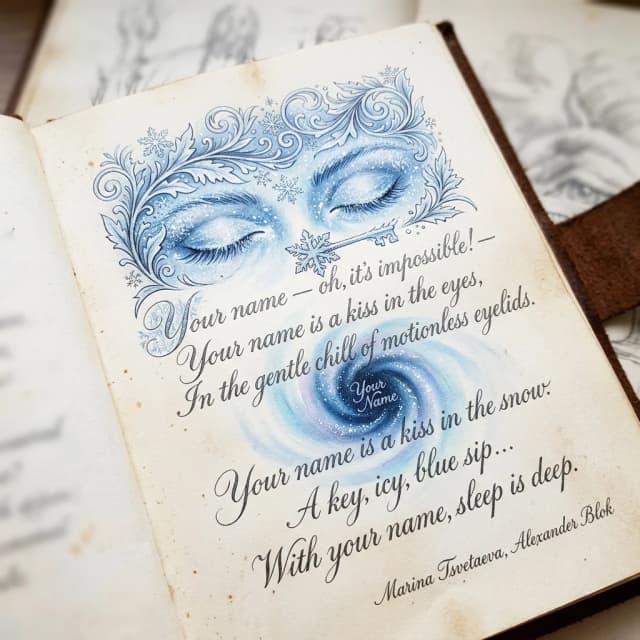 Your name — oh, it's impossible! —
Your name is a kiss in the eyes,
In the gentle chill of motionless eyelids.
Your
Name
Your name is a kiss in the snow.
A key, icy, blue sip...
With your name, sleep is deep.
Marina Tsvetaeva, Alexander Blok